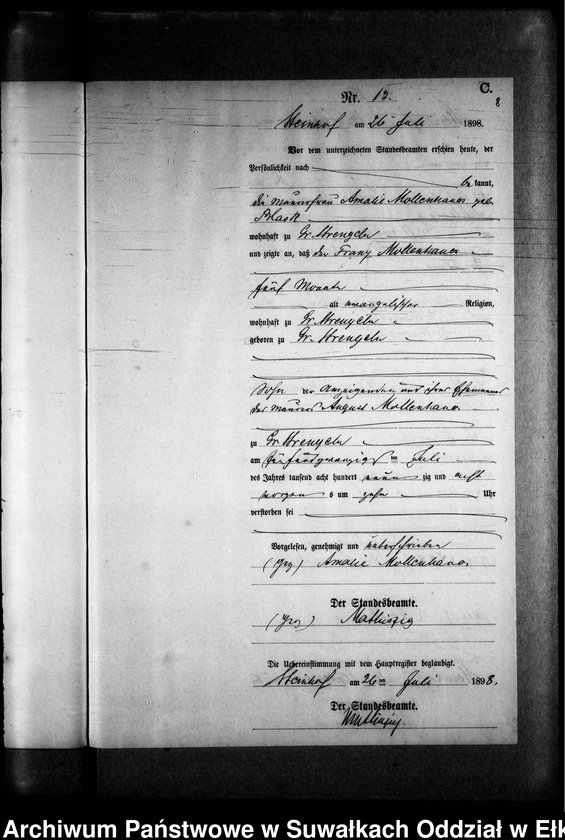 C.
8
Nr. 12.
Steinhof am 26 Juli 1898.
Vor dem unterzeichneten Standesbeamten erschien heute, der
Persönlichkeit nach
be kannt,
die Maurerfrau Amalie Mollenhauer geb.
wohnhaft zu Gr. Strengeln
und zeigte an, daß der Franz Mollenhauer
fünf Monate
alt evangelischer Religion,
wohnhaft zu Gr. Strengeln
geboren zu Gr. Strengeln
Sohn der Anzeigenden und ihres Ehemannes
des Maurers August Mollenhauer
zu Gr. Strengeln
am fünfundzwanzigsten Juli
des Jahres tausend acht hundert neun zig und acht
morgens um zehn Uhr
verstorben sei
Vorgelesen, genehmigt und unterschrieben
(gez.) Amalie Mollenhauer
Der Standesbeamte.
(gez) Mathiszig
Die Uebereinstimmung mit dem Hauptregister beglaubigt.
Steinhof am 26 ten Juli 1898.
Der Standesbeamte.
Archiwum Państwowe w Suwałkach Oddział w Ełk